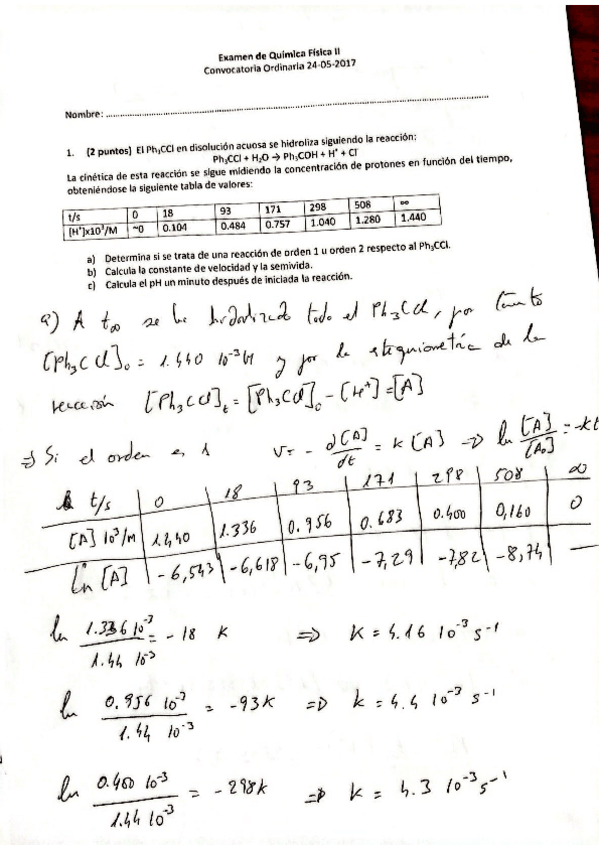 Examen de Química Física II
Convocatoria Ordinaria 24-05-2017
Nombre: ....................................................................
1. (2 puntos) El Ph₃CCl en disolución acuosa se hidroliza siguiendo la reacción:
Ph₃CCl + H₂O → Ph₃COH + H⁺ + Cl⁻
La cinética de esta reacción se sigue midiendo la concentración de protones en función del tiempo,
obteniéndose la siguiente tabla de valores:
t/s 0 18 93 171 298 508 ∞
[H⁺]x10³/M ~0 0.104 0.484 0.757 1.040 1.280 1.440
a) Determina si se trata de una reacción de orden 1 u orden 2 respecto al Ph₃CCl.
b) Calcula la constante de velocidad y la semivida.
c) Calcula el pH un minuto después de iniciada la reacción.
a) A t∞ se ha hidrolizado todo el Ph₃CCl, por tanto
[Ph₃CCl]₀ = 1.440 10⁻³M y por la estequiometría de la
reacción [Ph₃CCl]t = [Ph₃CCl]₀ - [H⁺] = [A]
⇒ Si el orden es 1 v = - d[A]/dt = k [A] ⇒ ln [A]/[A₀] = -kt
t/s 0 18 93 171 298 508 ∞
[A] 10³/M 1.440 1.336 0.956 0.683 0.400 0,160 0
ln [A] -6,543 -6,618 -6,95 -7,29 -7,82 -8,74 —
ln 1.336 10⁻³/1.44 10⁻³ = -18 k ⇒ k = 4.16 10⁻³ s⁻¹
ln 0.956 10⁻³/1.44 10⁻³ = -93k ⇒ k = 4.4 10⁻³ s⁻¹
ln 0.400 10⁻³/1.44 10⁻³ = -298k ⇒ k = 4.3 10⁻³ s⁻¹